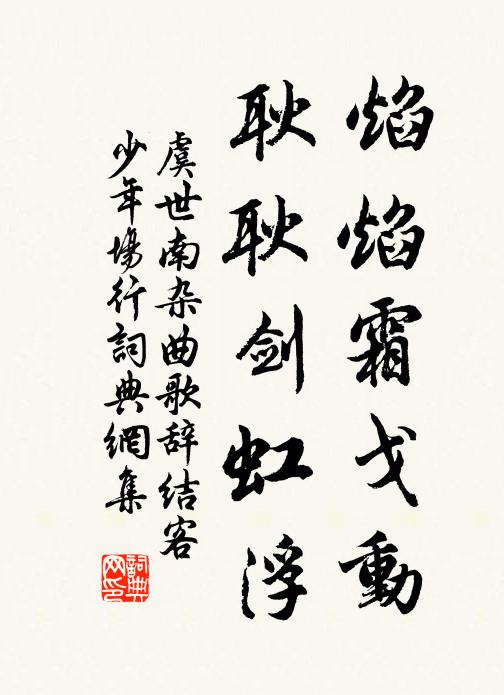 焰焰霜戈動
耿耿剑虹浮
虞世南杂曲歌辞结客
少年場行詞典網集
詞典
网印